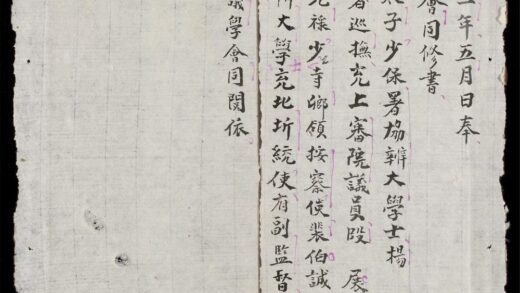 二年五月日奉
會同修書
太子少保署協辨大學士楊
省巡撫充上審院議員段 展
光祿少寺鄉領按察使裴伯誠
所大學充北圻統使府副監督
議學會同閱依